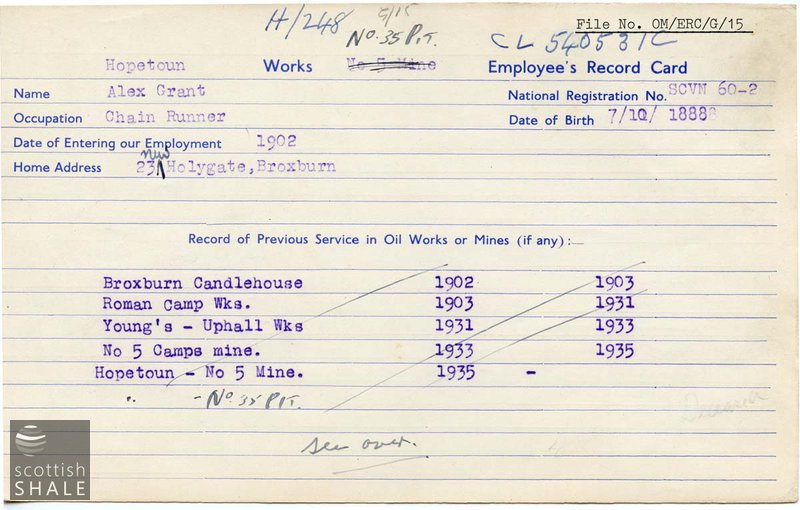 H/248 G/15 File No. OM/ERC/G/15
No. 35 Pit. CL 540531C
Hopetoun Works No 5 Mine Employee's Record Card
Name Alex Grant National Registration No. SCVN 60-2
Occupation Chain Runner Date of Birth 7/10/ 1888
Date of Entering our Employment 1902
Home Address 23 New Holygate, Broxburn
Record of Previous Service in Oil Works or Mines (if any):—
Broxburn Candlehouse 1902 1903
Roman Camp Wks. 1903 1931
Young's - Uphall Wks 1931 1933
No 5 Camps mine. 1933 1935
Hopetoun - No 5 Mine. 1935 -
" - No 35 Pit.
Deceased
see over.
scottish
SHALE